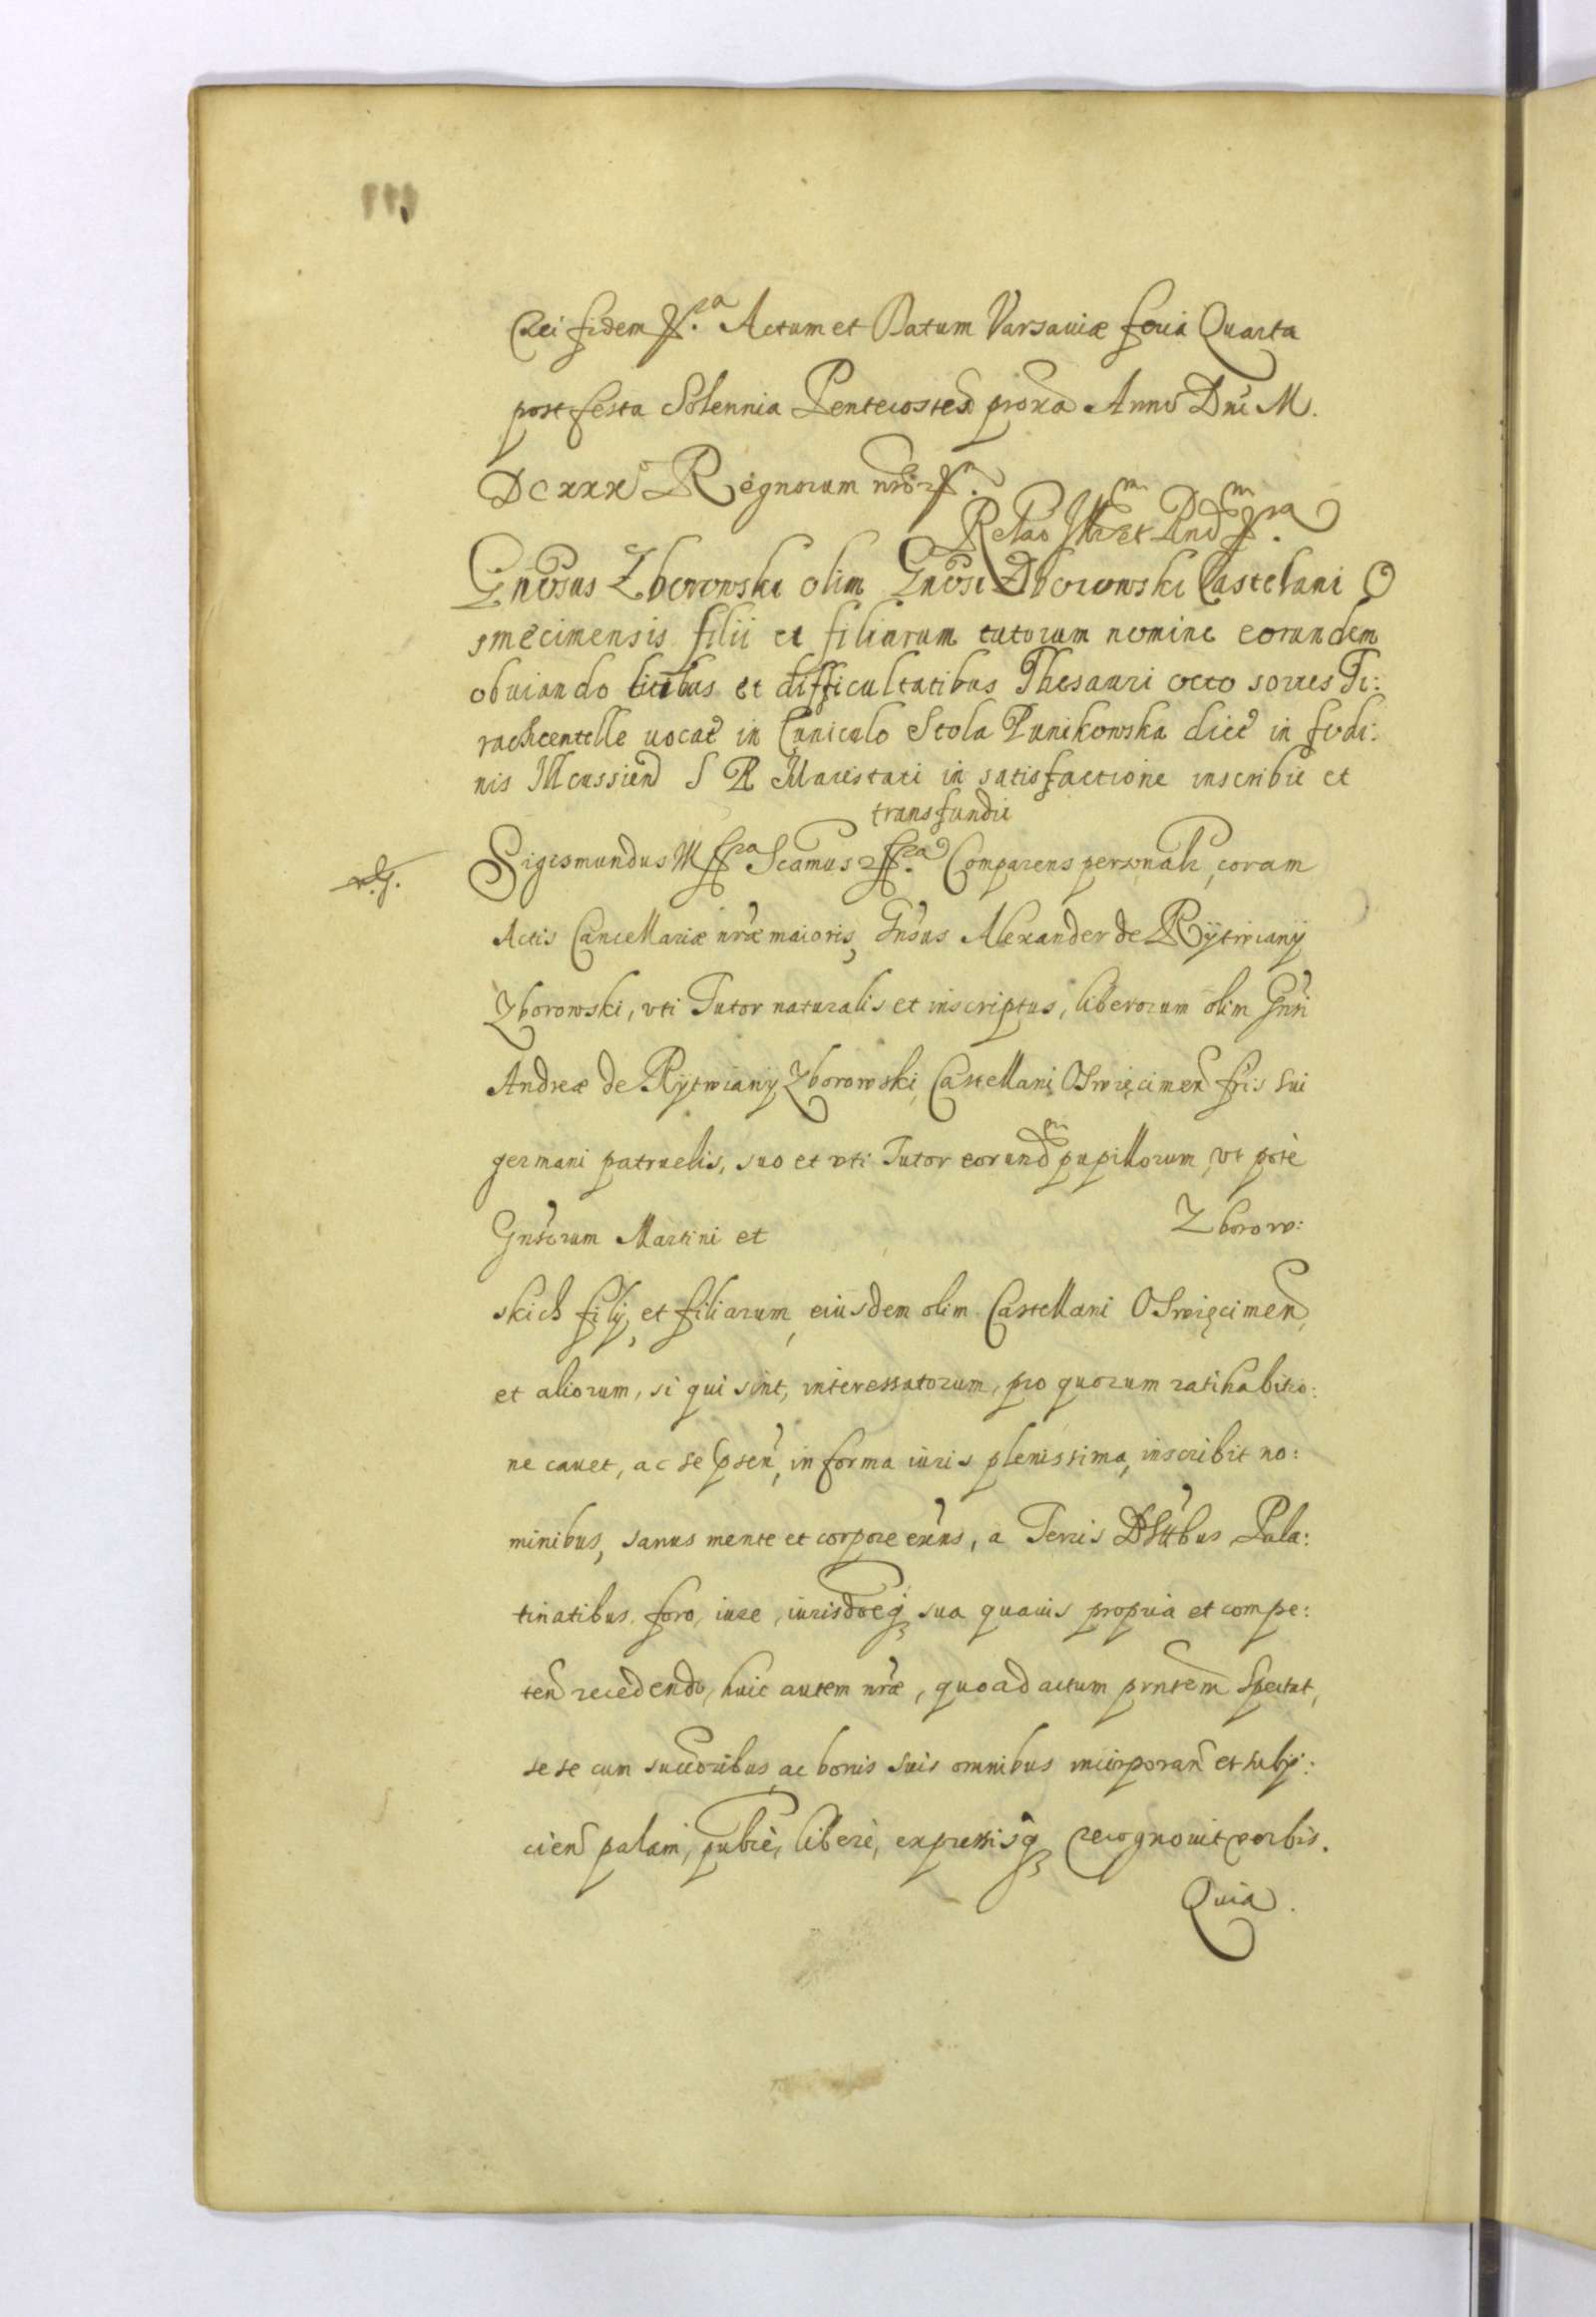 Rei fidem pp.ra Actum et Datum Varsauiæ feria Quarta
post festa Solennia Pentecosten proxa Anno Dni M.
DCXXX Regnorum nror pp.
Relao Illm et Rndm pp.ra
Gnosus Zborowski olim Gnosi Zborowski Castelani O
smecimensis filii et filiarum tutorum nomine eorundem
obuiando litibus et difficultatibus Thesauri octo sortes Ti:
rachcentelle uocat in Cuniculo Stola Ponikowska dict in fodi:
nis Ilcussien S R Maiestati in satisfactione inscribit et
transfundit
Sigismundus III pp.ra Scamus pp.ra Comparens personalr, coram
Actis Cancellariæ nræ maioris, Gnsus Alexander de Rÿtwianÿ
Zborowski, vti Tutor naturalis et inscriptus, liberorum olim Gnsi
Andreæ de Rÿtwianÿ Zborowski, Castellani Oswięcimen fris sui
germani patruelis, suo et vti Tutor eorundm pupillorum, vt pote
Gnsorum Martini et Zborow:
skich filij, et filiarum, eiusdem olim Castellani Oswięcimen,
et aliorum, si qui sint, interessatorum, pro quorum ratihabitio:
ne cauet, ac se psen, in forma iuris plenissima, inscribit no:
minibus, sanus mente et corpore exns, a Terris Dstribus Pala:
tinatibus foro, iure, iurisdoeq sua quauis propria et compe:
ten recedendo, huic autem nræ, quoad actum prntem spectat,
se se cum succoribus, ac bonis suis omnibus incorporan et subij:
cien palam, publce, libere, expressisq recognouit verbis.
Quia.